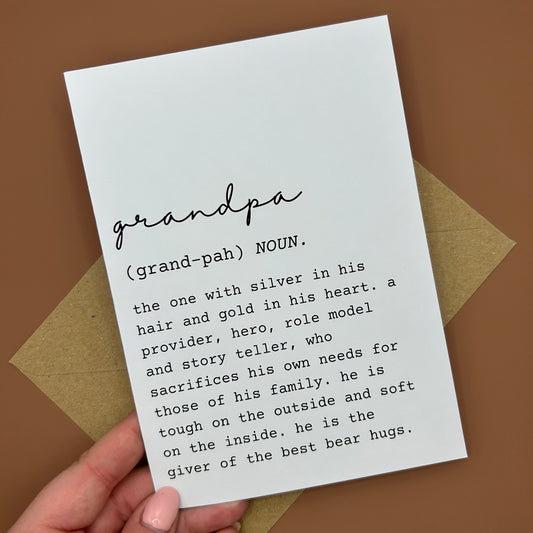 grandpa
(grand-pah) NOUN.
the one with silver in his
hair and gold in his heart. a
provider, hero, role model
and story teller, who
sacrifices his own needs for
those of his family. he is
tough on the outside and soft
on the inside. he is the
giver of the best bear hugs.